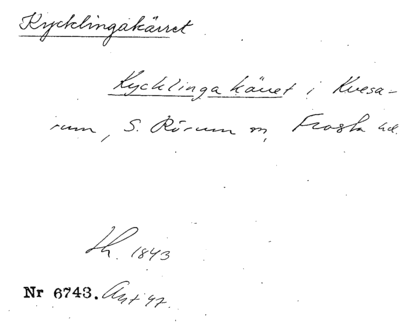 Kycklingakärret
Kycklinga kärret i Kvesa-
rum, S. Rörum sn, Frosta hd.
Lh. 1843
Nr 6743. Avt 47.